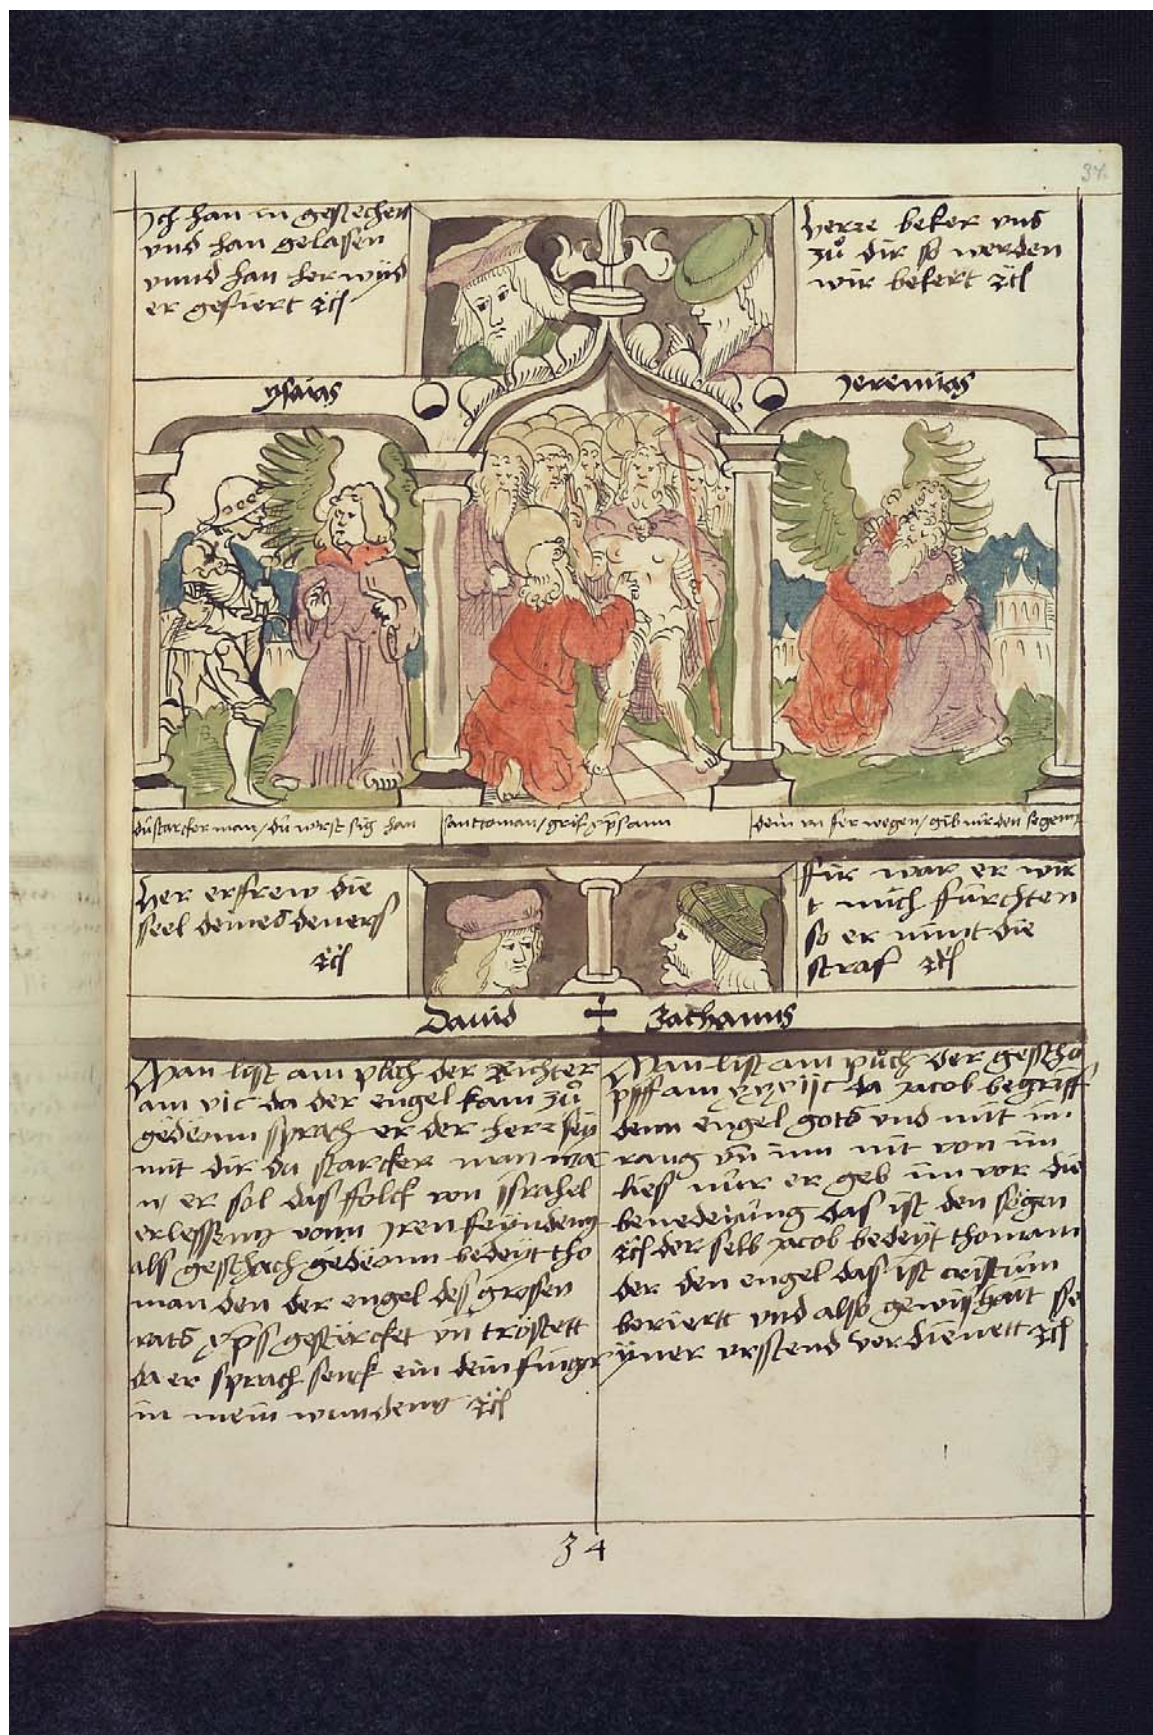 37
Ich han in gesechen
vnd han gelasen
vnnd han her wyd
er gefiert rc
herre beker vns
zů dir so werden
wir bekert rc
ysaias
Jeremias
du starcker man / du wirst sig han
sant toman / grif xps ann
dein vn ser wegen / gib mir den segen
Her erfrew die
seel deines deners
rc
fur war er wir
t mich furchten
so er nimt die
straf rc
Dauid
Zachanus
Man list am půch der Richter
am vic da der engel kam zů
gedeonn sprach er der herr sey
mit dir du starcker man
er sol das folck von israhel
erlessenn vonn Iren feyndenn
als geschach gedeonn bedeyt tho
man den der engel des grossen
rats xps gestercket vn tröstett
da er sprach senck ein dein finger
in mein wundenn rc
Man list am půch der geschö
pff am xxxijc da Jacob begriff
denn engel gots vnd mit im
rang vn im nit von im
lies nur er geb im vor die
benedeyung das ist den segen
rc der selb Jacob bedeyt thomam
der den engel das ist cristum
beriertt vnd also gewishait se
yner vrstend verdienett rc
34